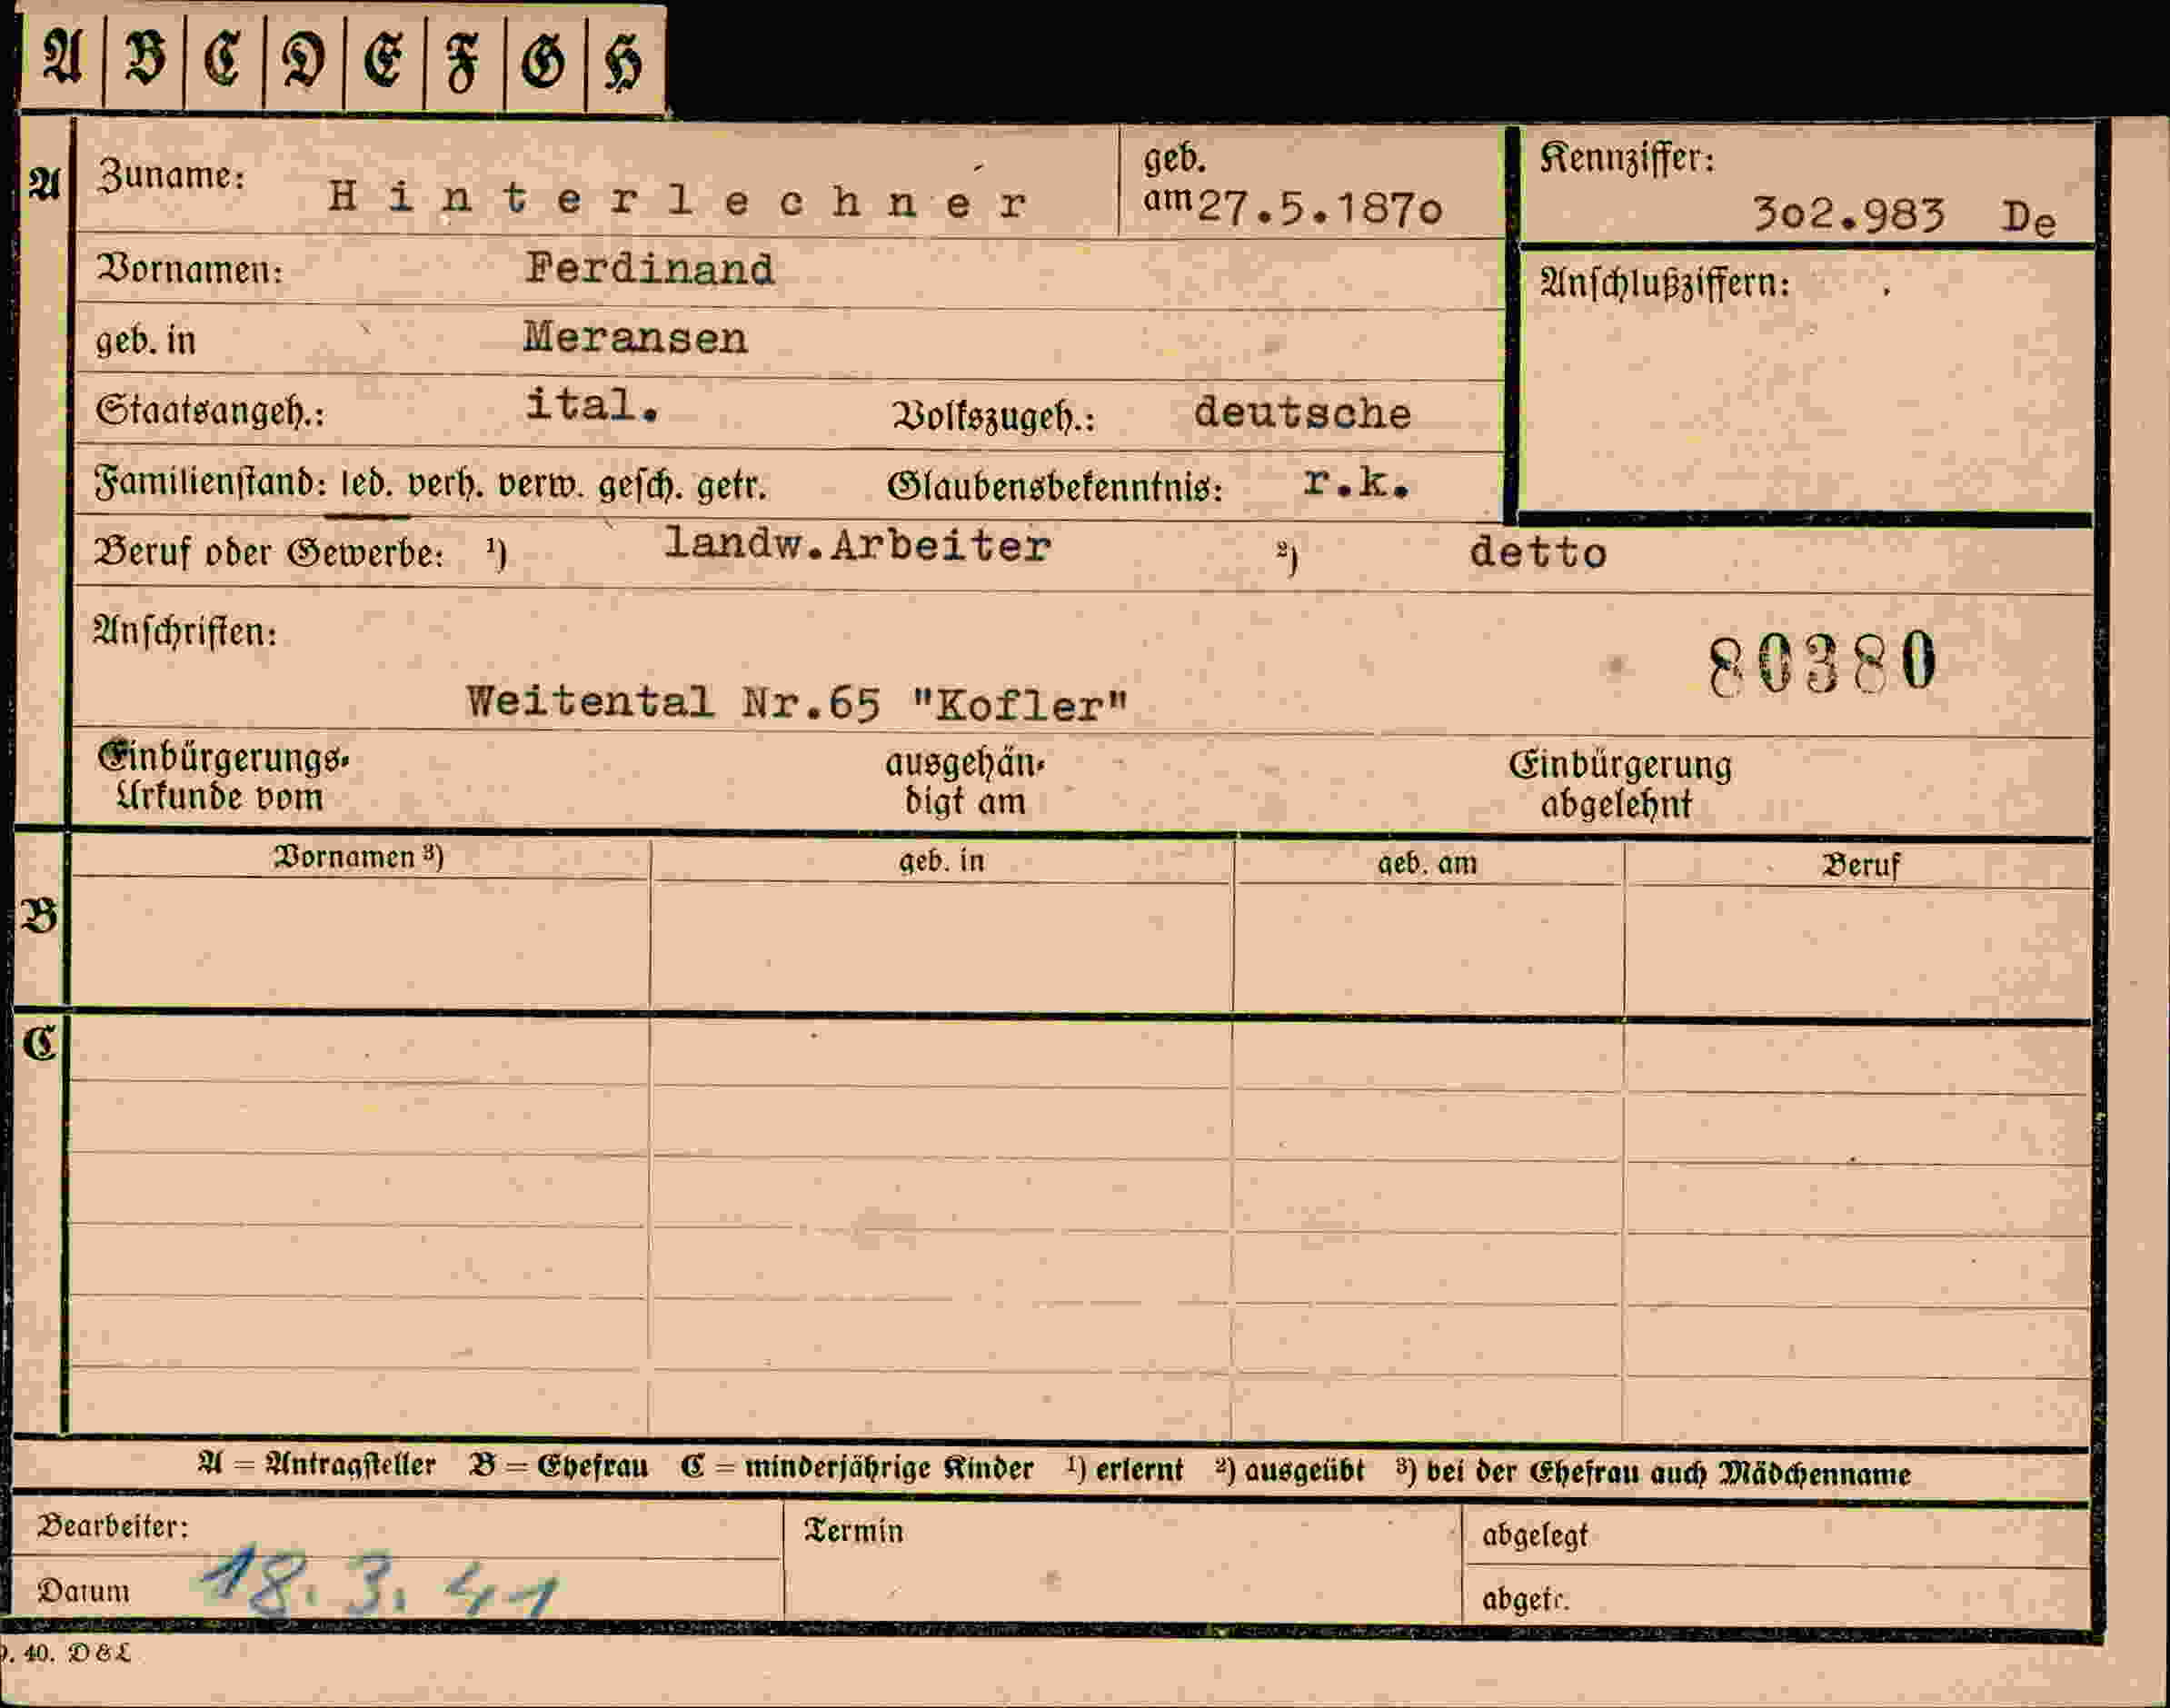 A B C D E F G H
A Zuname: Hinterlechner geb. am 27.5.1870 Kennziffer: 302.983 De
Vornamen: Ferdinand Anschlußziffern:
geb. in Meransen
Staatsangeh.: ital. Volkszugeh.: deutsche
Familienstand: led. verh. verw. gesch. getr. Glaubensbekenntnis: r.k.
Beruf oder Gewerbe: ¹) landw.Arbeiter ²) detto
Anschriften: 80380
Weitental Nr.65 "Kofler"
Einbürgerungs- ausgehän- Einbürgerung
Urkunde vom digt am abgelehnt
Vornamen ³) geb. in geb. am Beruf
B
C
A = Antragsteller B = Ehefrau C = minderjährige Kinder ¹) erlernt ²) ausgeübt ³) bei der Ehefrau auch Mädchenname
Bearbeiter: Termin abgelegt
Datum 18.3.41 abgetr.
40. D&L